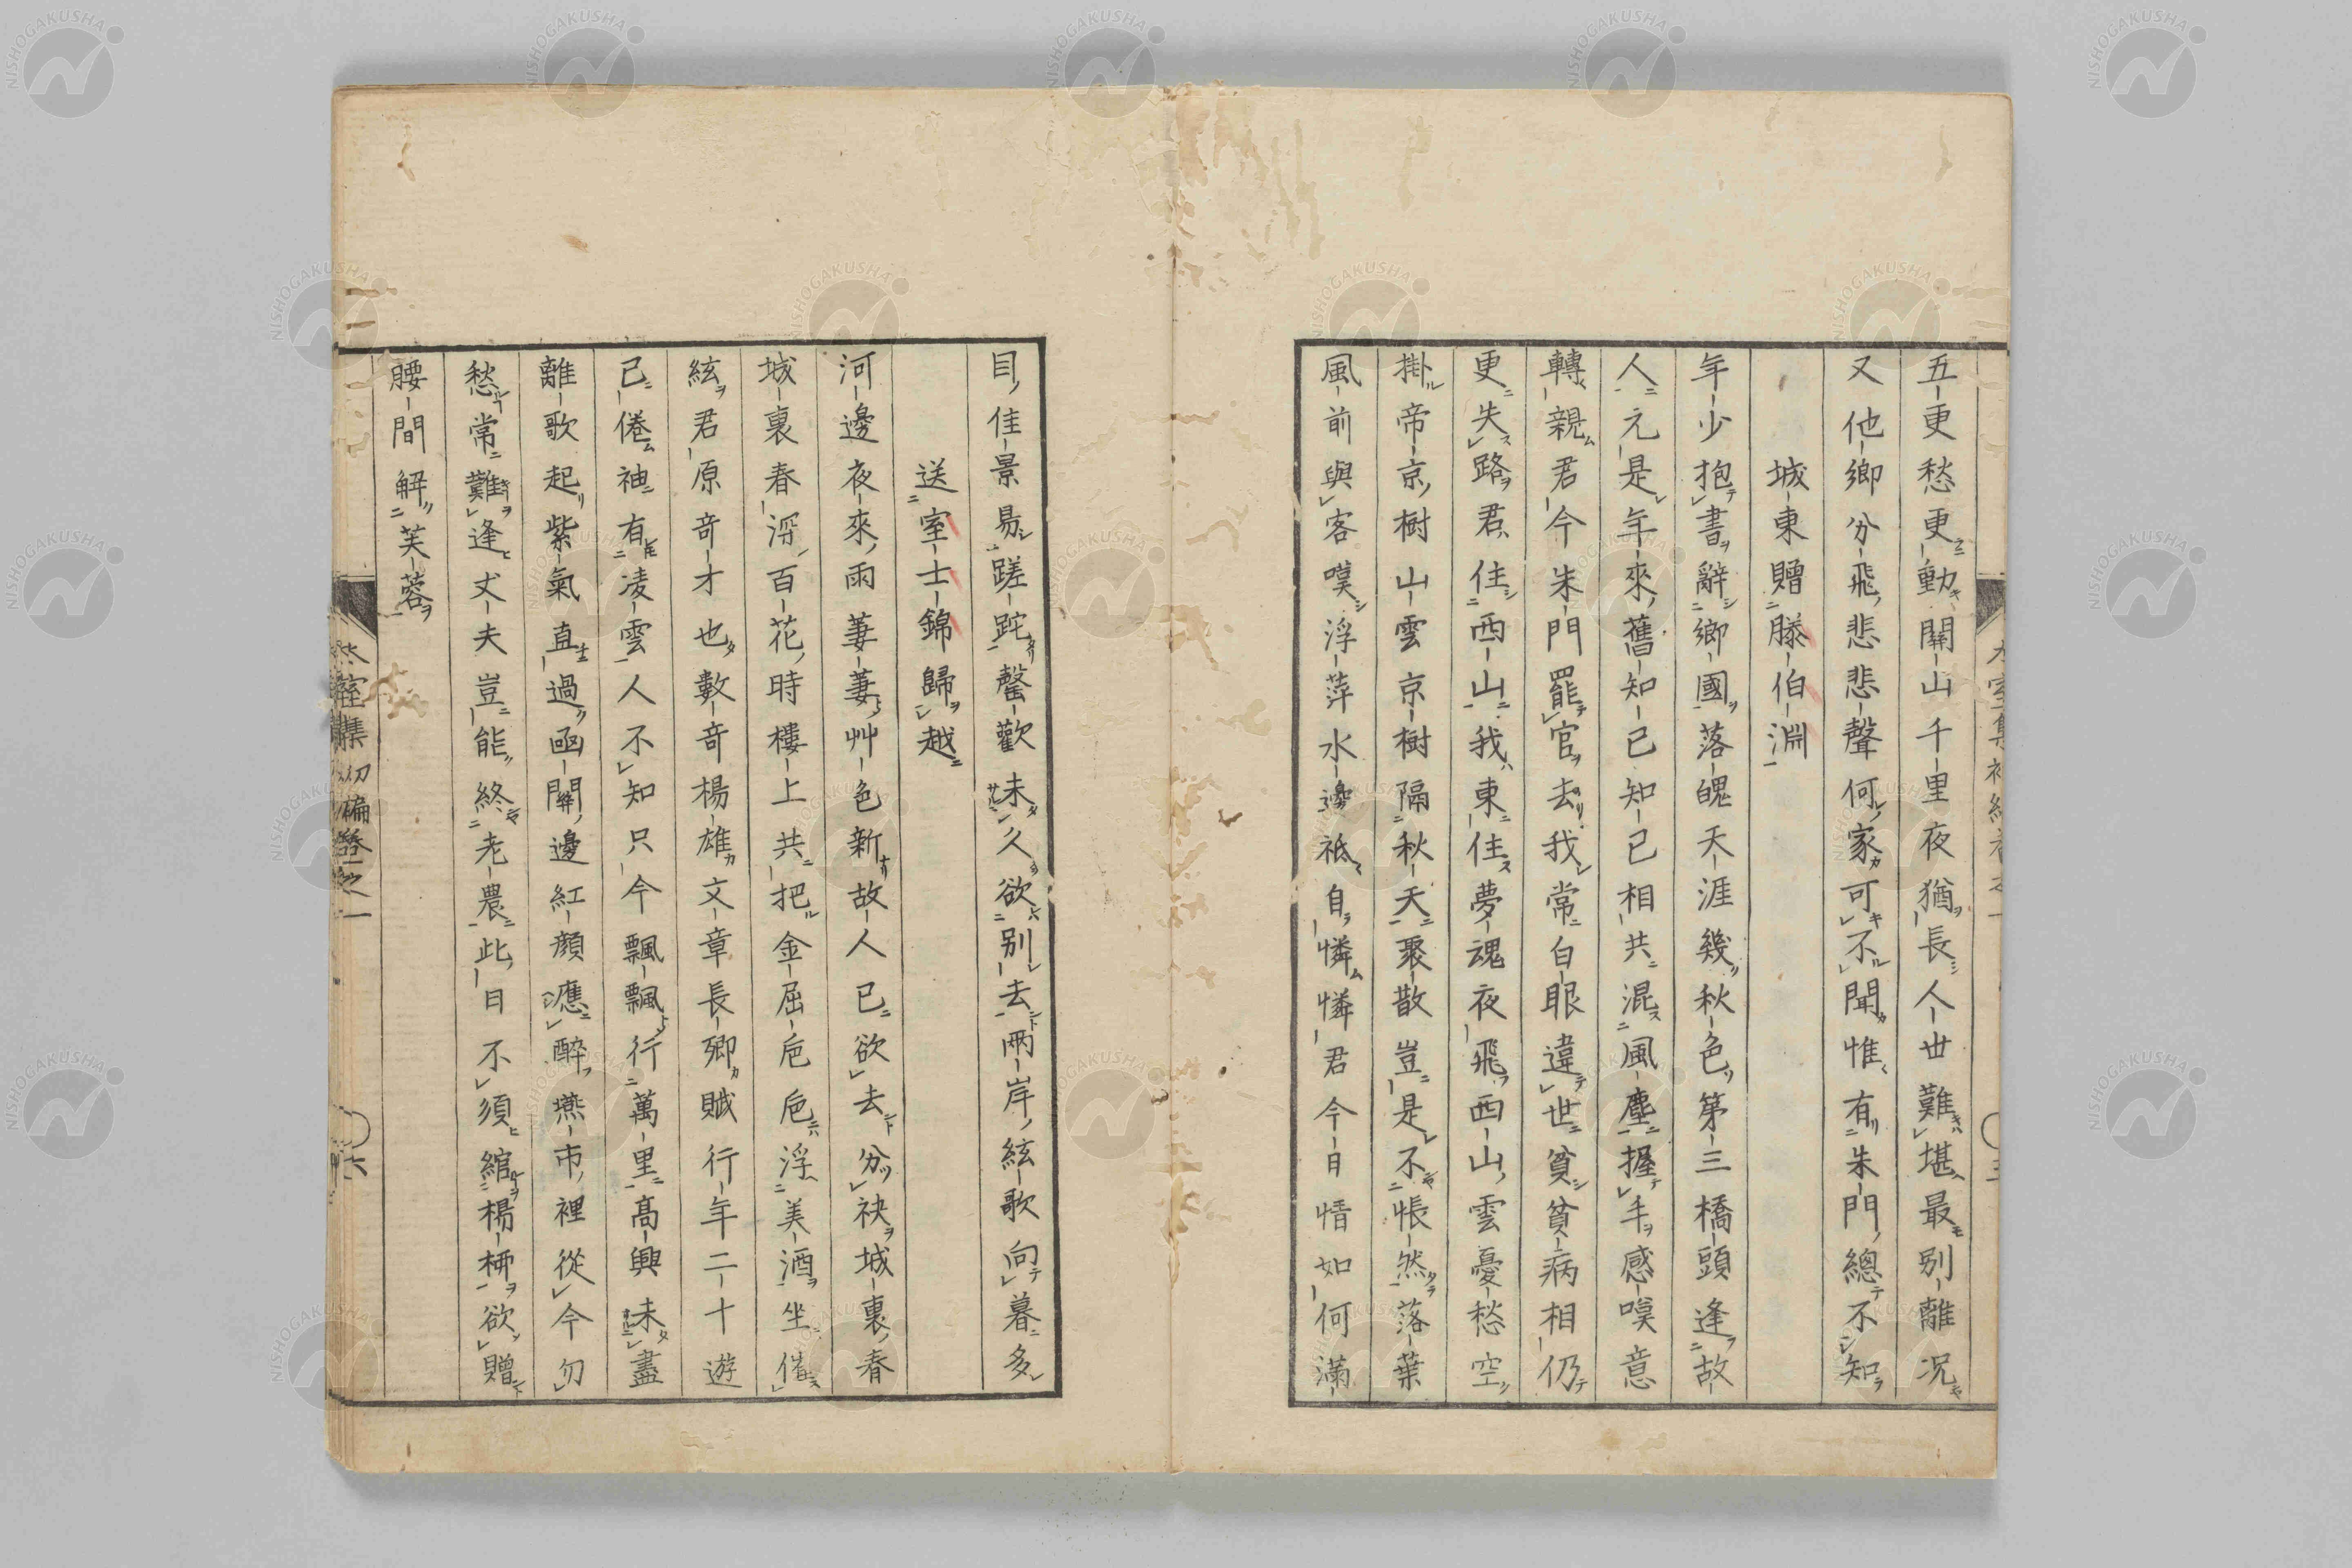 五更愁更動關山千里夜猶長人世難堪最別離況
又他鄉分飛悲悲聲何家可不聞惟有朱門總不知
城東贈滕伯淵
年少抱書辭鄉國落魄天涯幾秋色第三橋頭逢故
人元是年來舊知己知己相共混風塵握手感嘆意
轉親君今朱門罷官去我常白眼違世貧貧病相仍
更失路君住西山我東住夢魂夜飛西山雲憂愁空
掛帝京樹山雲京樹隔秋天聚散豈是不悵然落葉
風前與客嘆浮萍水邊祗自憐憐君今日情如何滿
目佳景易蹉跎罄歡未久欲別去兩岸絃歌向暮多
送室士錦歸越
河邊夜來雨萋萋艸色新故人已欲去分袂城裏春
城裏春深百花時樓上共把金屈卮卮浮美酒坐催
絃君原奇才也數奇楊雄文章長卿賦行年二十遊
已倦袖有凌雲人不知只今飄飄行萬里高興未盡
離歌起紫氣直過函關邊紅顏應醉燕市裡從今勿
愁常難逢丈夫豈能終老農此日不須綰楊柳欲贈
腰間解芙蓉
集初編卷之一
六
NISHOGAKUSHA